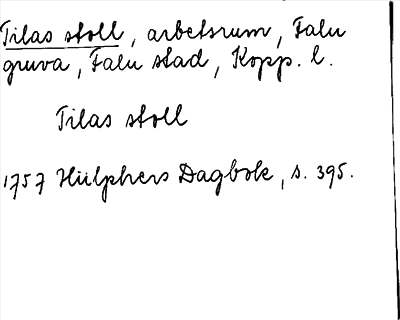 Tilas stoll, arbetsrum, Falu
gruva, Falu stad, Kopp. l.
Tilas stoll
1757 Hülphers Dagbok, s. 395.